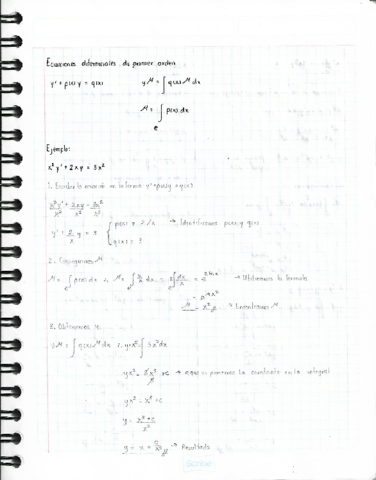 Ecuaciones diferenciales de primer orden
y' + p(x) y = q(x)    yM = ∫ q(x) M dx
M = e^∫ p(x) dx
Ejemplo:
x² y' + 2xy = 3x²
1. Escribir la ecuación en la forma y' + p(x)y = q(x)
x²y'/x² + 2xy/x² = 3x²/x²
y' + 2/x y = 3 { p(x) = 2/x → Identificamos p(x) y q(x)
q(x) = 3
2. M
M = e^∫ p(x) dx M = e^∫ 2/x dx = e^2∫ dx/x = e^2 ln x → Utilizamos la formula
= e^ln x²
M = x² → Encontramos M
3. Obtenemos y.
yM = ∫ q(x) M dx yx² = ∫ 3x² dx
yx² = 3x³/3 + c → aqui ponemos la constante en la integral
yx² = x³ + c
y = x³ + c / x²
y = x + c/x² → Resultado